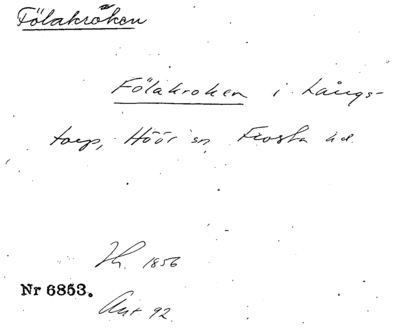 Fölakroken
Fölakroken i Långs-
torp, Höör sn Frosta hd
1856
Nr 6853.
92